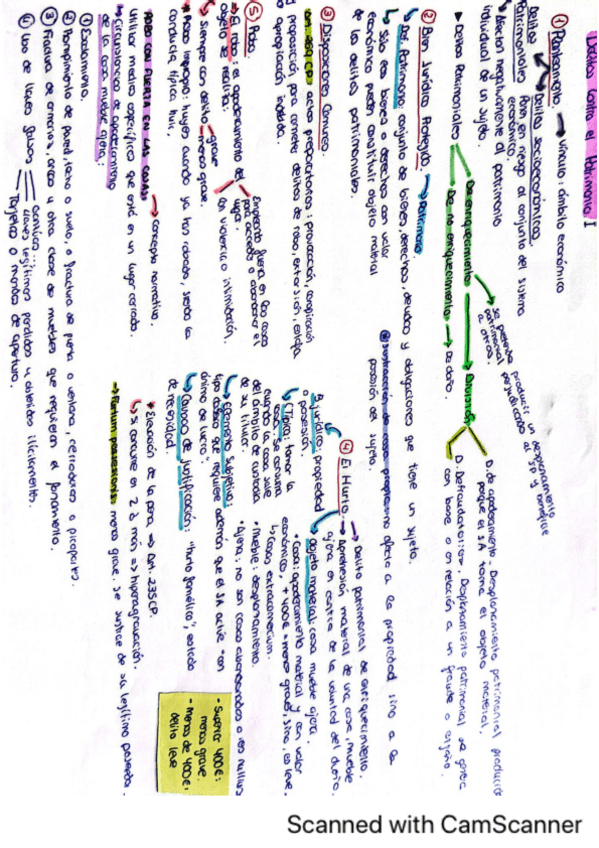 Delitos contra el Patrimonio I
① Planteamiento → vínculo: ámbito económico
Delitos → Delitos socioeconómicos
Patrimoniales Ponen en riesgo al conjunto del sistema económico.
Afectan negativamente al patrimonio
individual de un sujeto.
▸ Delitos Patrimoniales
De enriquecimiento → División
se pretende producir un desplazamiento
patrimonial perjudicando al SP y
a otros.
De no enriquecimiento → as daño.
D. de apoderamiento. Desplazamiento patrimonial producido
porque el SA toma el objeto material.
D. Defraudatorios. Desplazamiento patrimonial se genera
con base o en relación a un fraude o engaño.
② Bien Jurídico Protegido → Patrimonio.
Patrimonio: conjunto de bienes, derechos, deudas y obligaciones que tiene un sujeto.
Sólo los bienes o derechos con valor
económico pueden constituir objeto material
de los delitos patrimoniales.
sustracción de cosa propia = no afecta a la propiedad sino a la
posesión del sujeto.
③ Disposiciones Comunes.
Art. 269 CP: actos preparatorios: provocación, conspiración
y proposición para cometer delitos de robo, extorsión, estafa
o apropiación indebida.
④ El Hurto.
→ Delito patrimonial de enriquecimiento.
→ Aprehensión material de una cosa mueble
ajena en contra de la voluntad del dueño.
B. jurídico: propiedad
o posesión.
→ Objeto material: cosa mueble ajena.
• Cosa: apoderamiento material y con valor
económico, + 400€ = menos grave, sino, es leve.
↳ Cosa extracomercium.
• Mueble: desplazamiento.
• Ajena: no son cosas abandonadas o res nullius
C. Típica: tomar la
cosa. Se consuma
cuando la cosa sale
del ámbito de custodia
de su titular.
Elemento Subjetivo
tipo doloso que requiere además que el SA actúe "con
ánimo de lucro".
Causa de justificación: "hurto famélico", estado
de necesidad.
• Elevación de la pena → Art. 235 CP.
↳ si concurren 2 ó más => hiperagravación.
→ Furtum possessionis: menos grave. Se sustrae de su legítimo poseedor.
- Superior 400€:
menos grave.
- menos de 400€:
delito leve
⑤ Robo.
→ El robo: el apoderamiento del
objeto se realiza:
Empleando fuerza en las cosas
para acceder o abandonar el
lugar.
Con violencia o intimidación.
Siempre con delito
grave
menos grave.
→ Robo impropio: huyes cuando ya has robado, siendo la
conducta típica huir.
ROBO CON FUERZA EN LAS COSAS → Concepto normativo.
utilizar medios específicos que esté en un lugar cerrado.
→ Circunstancias de apoderamiento
de la cosa mueble ajena:
① Escalamiento.
② Rompimiento de pared, techo o suelo, o fractura de puerta o ventana,
③ Fractura de armarios, arcas u otra clase de muebles que requieren el forzamiento.
④ Uso de llaves falsas
Ganzúas...
llaves legítimas perdidas u obtenidas ilícitamente.
Tarjetas o mandos de apertura.
Scanned with CamScanner